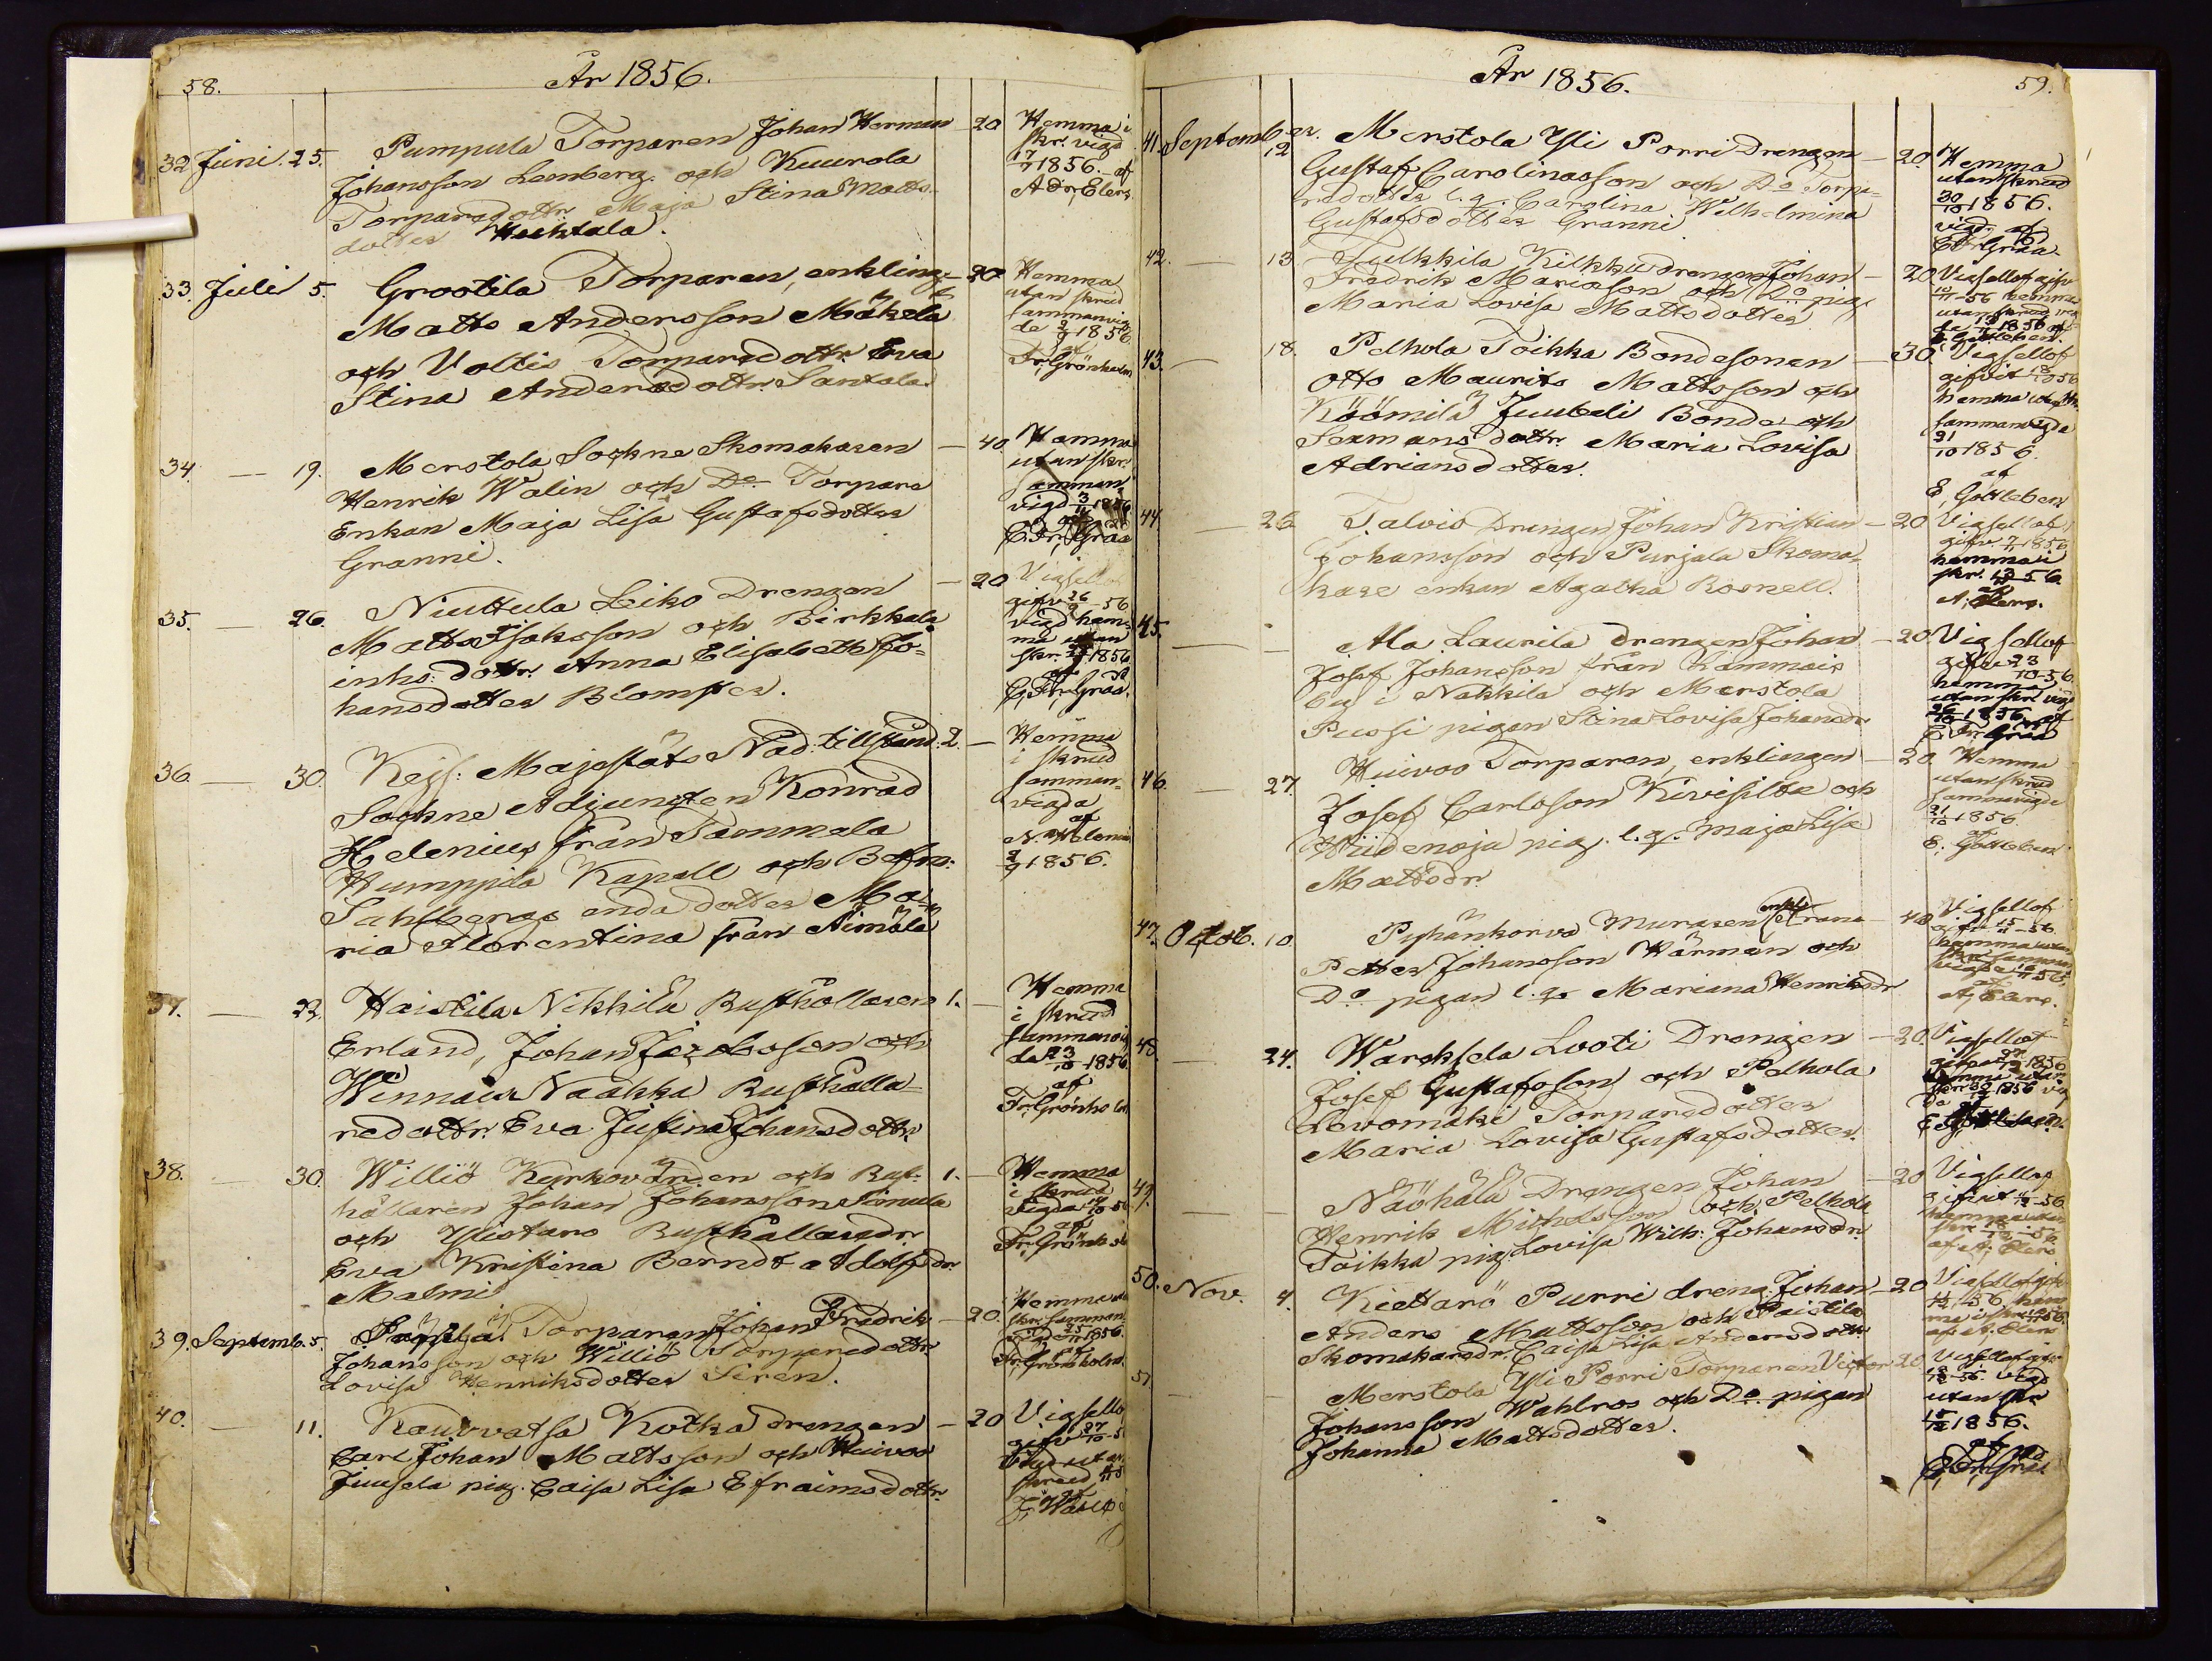 58.
År 1856.
32 Juni. 25. Pumpula Torparen Johan Herman
Johansson Lemberg och Kuurola
Torparedottr. Maja Stina Matts-
dotter Huktala.
20
Hemma i
skr. vigd
17/7 1856. af
A. Dr. Elers.
33. Juli 5. Grootila Torparen, enkling.
Matts Andersson Mäkelä
och Voltis Torparedottr. Eva
Stina Andersdottr. Santala.
20
Hemma
utan skrud
sammanvig
de 2/9 1856.
af
Fr. Grönholm
34. — 19. Merstola Sockne Skomakaren
Henrik Walin och Do Torpare
Enkan Maja Lisa Gustafsdotter
Granni.
40
Hemma
utan skr.
samman
vigd 3/11 1856
af
C. Fr. Graa
35. — 26. Niuttula Leiko Drengen
Matts Isaksson och Birkkala
inhs: dottr. Anna Elisabeth Jo=
hansdotter Blomster.
20
Vigsellof
gifv. 26/9 -56
vigd hem=
ma utan
skr. 1856
af
C. Fr. Graa.
36. — 30. Kejs: Majestäts Nåd. tillstånd.
Sockne Adjuncten Konrad
Helenius från Tammela
Humppila Kapell och Befm.
Sahlbergs enda dotter Ma-
ria Florentina från Äimälä
2.
Hemma
i skrud
samman=
vigda
af
N. Helenius
2/9 1856.
37. — 22. Haistila Nikkilä Rusthållaren
Erland, Johan Jacobsson och
Winnais Naakka Rusthålla-
redottr. Eva Justina Johansdottr.
1.
Hemma
i skrud
sammanvig
da 23/10 1856.
af
Fr. Grönholm
38. — 30. Williö Kyrkovärden och Rust-
hållaren Johan Johansson Simula
och Ylistaro Rusthållaredr.
Eva Kristina Berndt Adolfsdr.
Malmi
1.
Hemma
i skrud
vigda 14/10 -56
af
Fr. Grönhol
39. Septemb. 5. Torparen Johan Fredrik
Johansson och Williö Torparedottr.
Lovisa Henriksdotter Siren.
20.
Hemma utan
skr. samman
vigd 1856.
af
Fr. Grönholm.
40. — 11. Kauvvatsa Kotka drengen
Carl Johan Mattsson och Huivoo
Juusela pig. Caisa Lisa Efraimsdottr.
20
Vigsello
gifv 27/10 -5
vigd utan
skrud
af
59.
År 1856.
41. September. 12 Merstola Yli Porri Drengen
Gustaf Carolinasson och Do Torpa=
redotter l. q. Carolina Wilhelmina
Gustafsdotter Granni
20
Hemma
utan skrud
30/10 1856.
vigd af
C. Fr. Graa
42. — 13. Tulkkila Kilkku drengen Johan
Fredrik Mariasson och Do pig.
Maria Lovisa Mattsdotter
20
Vigsellof gifv
10/11 -56 hemma
utan skrud vig
de 1856 af
E. Gottleben.
43. — 18. Pelhola Toikka Bondesonen
Otto Maurits Mattsson och
Köömilä Juuteli Bonde och
Sexmans dottr. Maria Lovisa
Adriansdotter.
30
Vigsellof
gifvit 18/10 56
hemma utan skr.
sammanvigda
31/10 1856.
af
E. Gottleben
44 — 26 Talvio Drengen Johan Kristian
Johansson och Purjala Skoma=
kare enkan Agatha Rosnell.
20
Vigsellof
gifv. 7/11 1856
hemma i
skr. 13/11 56
af
A. Elers.
45. — — Ala Laurila drengen Johan
Josef Johansson från Lammais
by i Nakkila och Merstola
Pussi pigan Stina Lovisa Johansdr
20
Vigsellof
gifv. 23/10 -56.
hemma
utan skr. vigd
26/10 1856 af
C. Fr. Graa
46. — 27. Huivoo Torparen, enklingen
Josef Carlsson Kivisilta och
Wiidenoja pig. l. q. Maja Lisa
Mattsdr.
20
Hemma
utan skrud
sammanvigde
31/10 1856.
af
E. Gottleben
47. Octob. 10. Pyhänkorva Muraren enkl. Frans
Petter Johansson Wärman och
Do pigan l. q. Mariana Henriksdr
40
Vigsellof
gifv. 15/11 -56.
hemma utan
skr. samman
vigde 56.
af
A. Elers.
48 — 24. Wareksela Looti Drengen
Josef Gustafsson och Pelhola
Levomäki Torparedotter
Maria Lovisa Gustafsdotter.
20.
Vigsellof
gifv. 1856
hemma utan
skr. 1856 vig
de af
E. Gottleben.
49. — — Naöhälä Drengen Johan
Henrik Michelsson och Pelhola
Toikka pig. Lovisa Wilh: Johansdr.
20
Vigsellof
gifvit -56
hemma utan
skr. -56
af A. Elers
50. Nov. 4. Kiettarö Purri dreng. Johan
Anders Mattsson och Paistila
Skomakaredr. Caisa Lisa Andersdottr
20
Vigsellof gifv
-56, hem
ma i skrud 56.
af A. Elers
51. — Merstola Yli Porri Torparen Victor
Johansson Wahlros och Do. pigan
Johanna Mattsdotter.
20
Vigsellof gifv
-56. vigd
utan skr
15/12 1856.
af
C. Fr. Graa